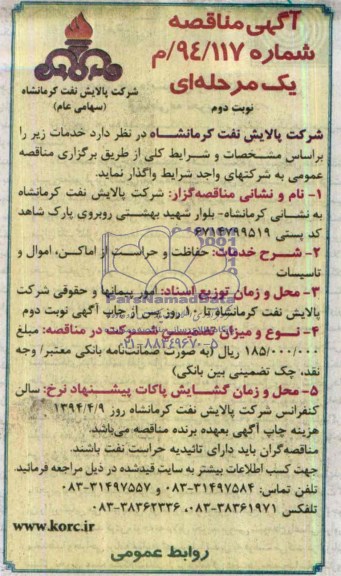 آگهی مناقصه
شماره ۹۴/۱۱۷/م
یک مرحله‌ای
نوبت دوم
شرکت پالایش نفت کرمانشاه
(سهامی عام)
شرکت پالایش نفت کرمانشاه در نظر دارد خدمات زیر را
براساس مشخصات و شرایط کلی از طریق برگزاری مناقصه
عمومی به شرکتهای واجد شرایط واگذار نماید.
۱- نام و نشانی مناقصه‌گزار: شرکت پالایش نفت کرمانشاه
به نشانی کرمانشاه- بلوار شهید بهشتی روبروی پارک شاهد
کد پستی ۶۷۱۴۷۹۹۵۱۹
۲- شرح خدمات: حفاظت و حراست از اماکن، اموال و
تاسیسات
۳- محل و زمان توزیع اسناد: امور پیمانها و حقوقی شرکت
پالایش نفت کرمانشاه تا ۱۰ روز پس از چاپ آگهی نوبت دوم
۴- نوع و میزان تضمین شرکت در مناقصه: مبلغ
۱۸۵/۰۰۰/۰۰۰ ریال (به صورت ضمانت‌نامه بانکی معتبر/ وجه
نقد، چک تضمینی بین بانکی)
۵- محل و زمان گشایش پاکات پیشنهاد نرخ: سالن
کنفرانس شرکت پالایش نفت کرمانشاه روز ۱۳۹۴/۴/۹
هزینه چاپ آگهی بعهده برنده مناقصه می‌باشد.
مناقصه‌گران باید دارای تائیدیه حراست نفت باشند.
جهت کسب اطلاعات بیشتر به سایت قیدشده در ذیل مراجعه فرمائید.
تلفن تماس: ۳۱۴۹۷۵۸۴-۰۸۳ و ۳۱۴۹۷۵۵۷-۰۸۳
تلفکس ۳۸۳۶۱۹۷۱-۰۸۳، ۳۸۳۶۲۳۳۶-۰۸۳
www.korc.ir
روابط عمومی
ParsNamadData
۰۲۱-۸۸۳۴۹۶۷۰-۵